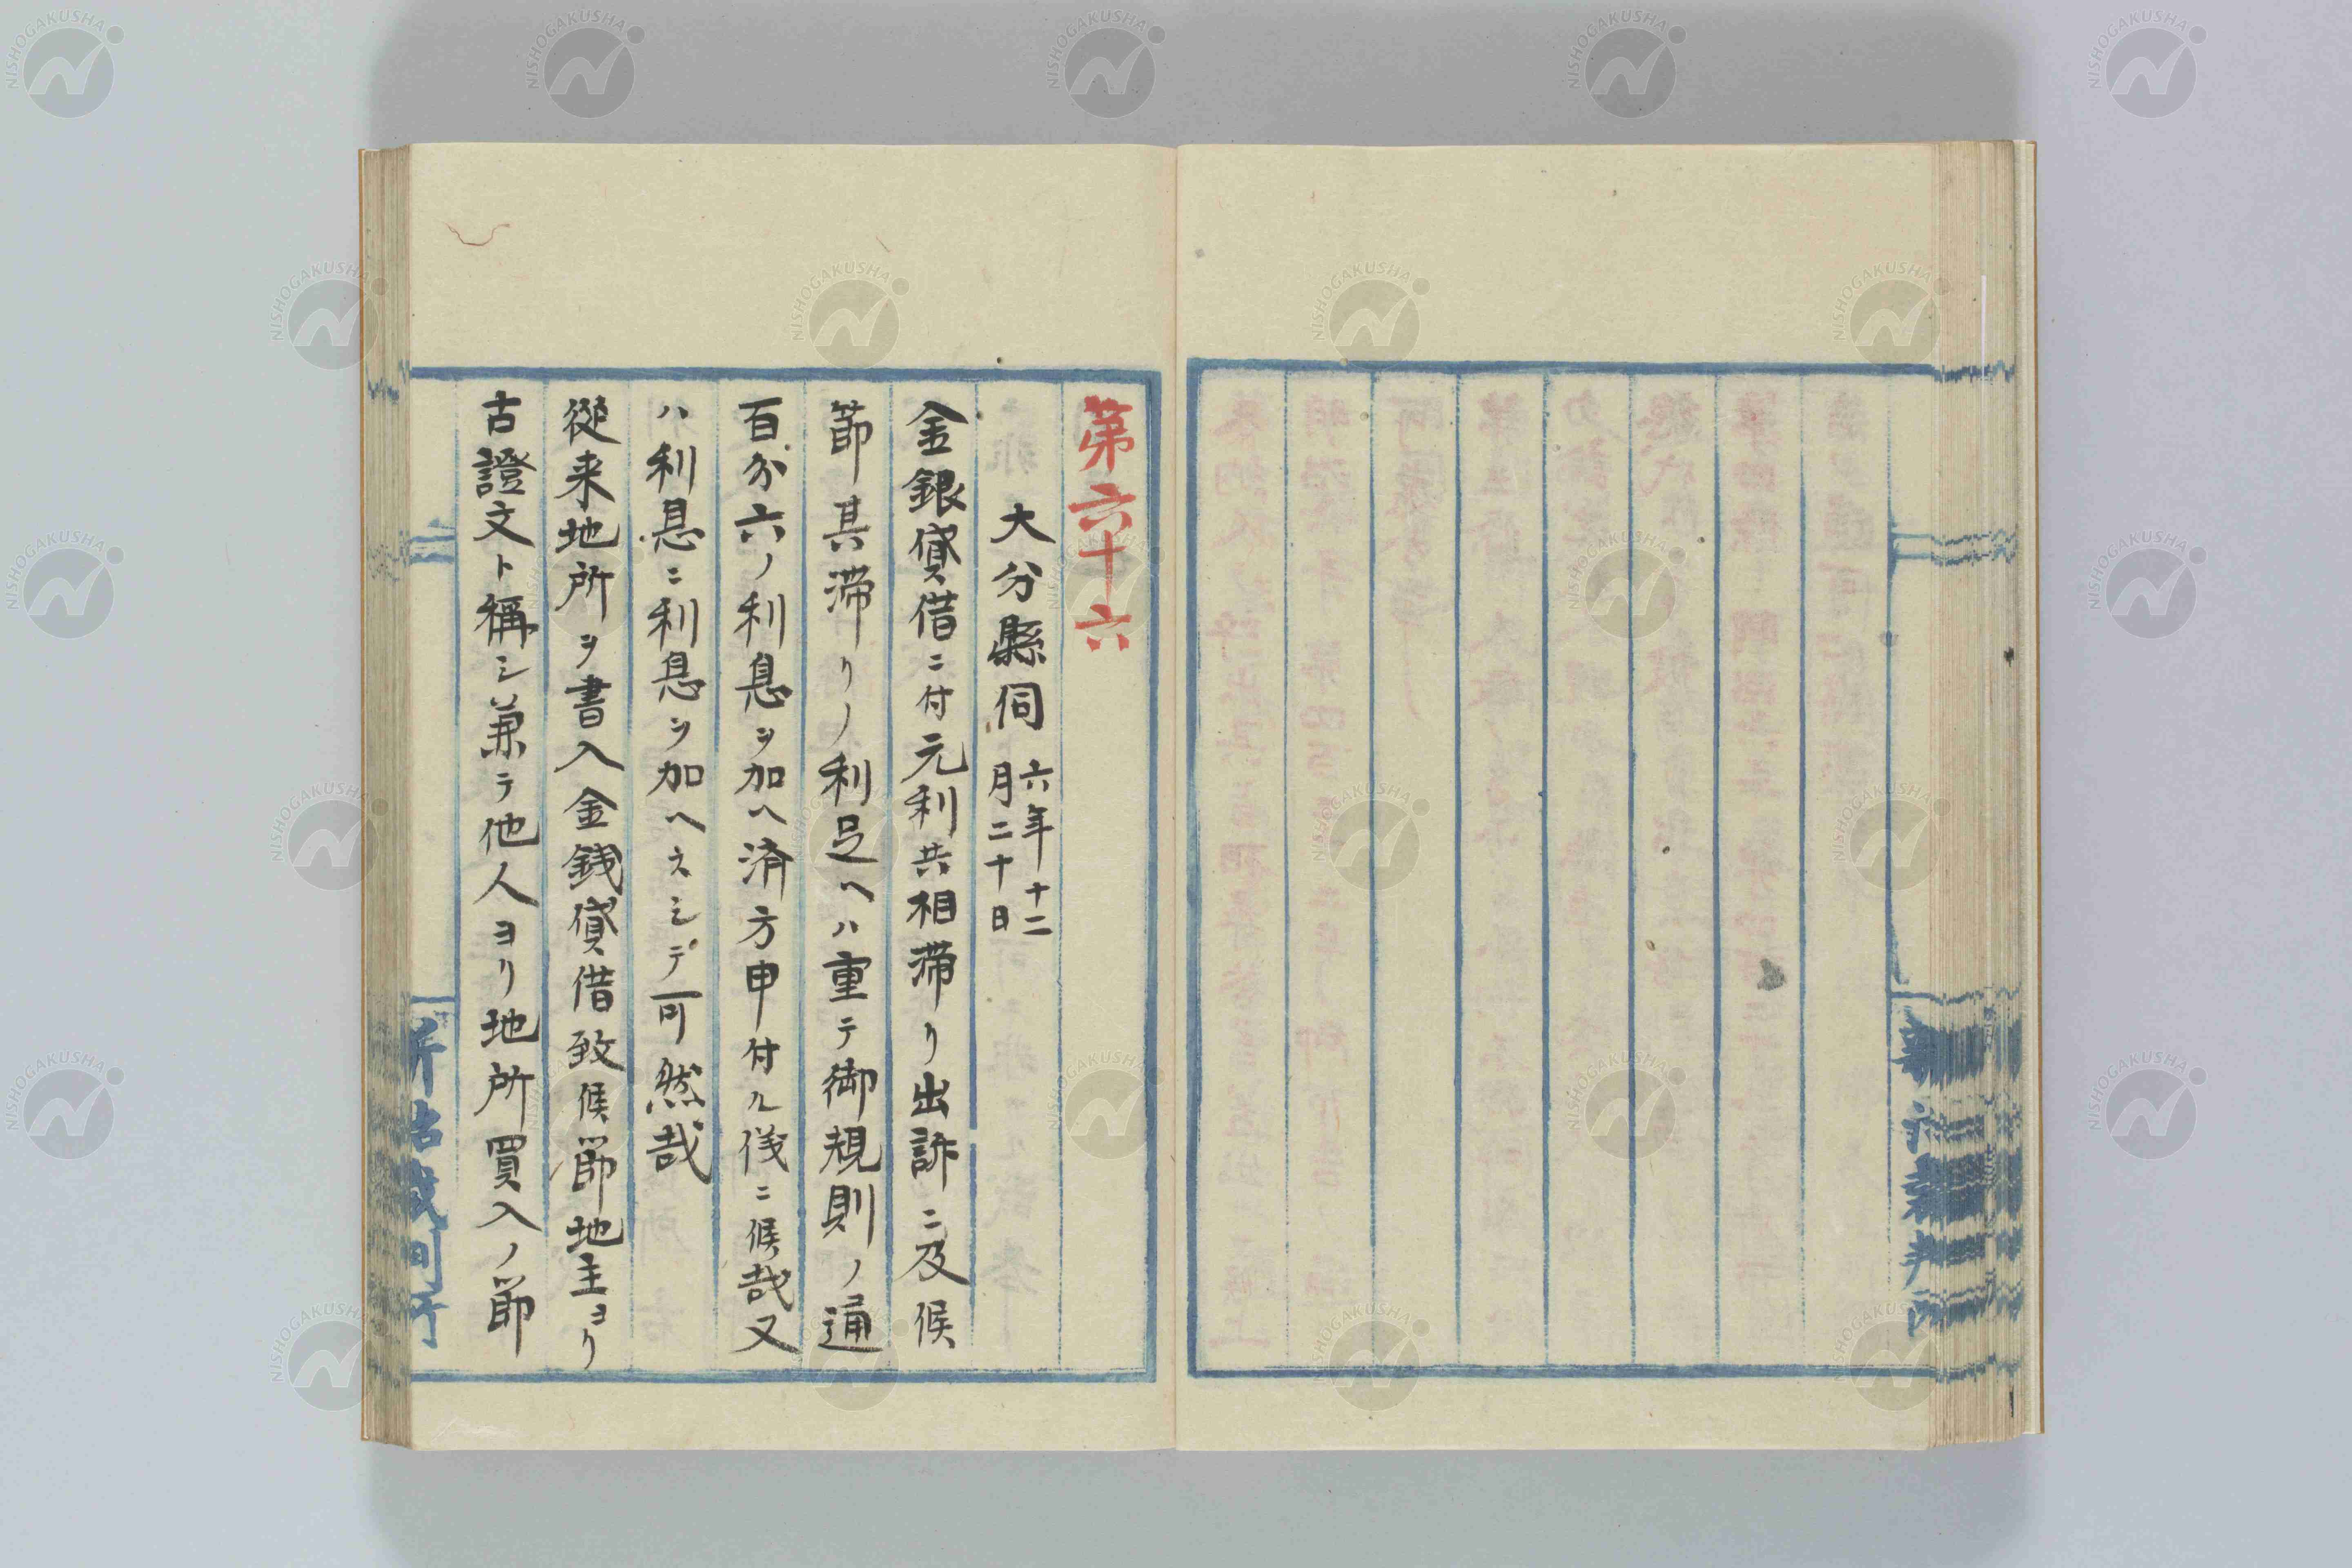 第六十六
大分縣伺 六年十二月二十日
金銀貸借ニ付元利共相滞リ出訴ニ及候
節其滞リノ利足ヘハ重テ御規則ノ通
百分六ノ利息ヲ加ヘ済方申付ル儀ニ候哉又
ハ利息ニ利息ヲ加ヘスシテ可然哉
従来地所ヲ書入金銭貸借致候節地主ヨリ
古證文ト稱シ兼テ他人ヨリ地所買入ノ節
NISHOGAKUSHA